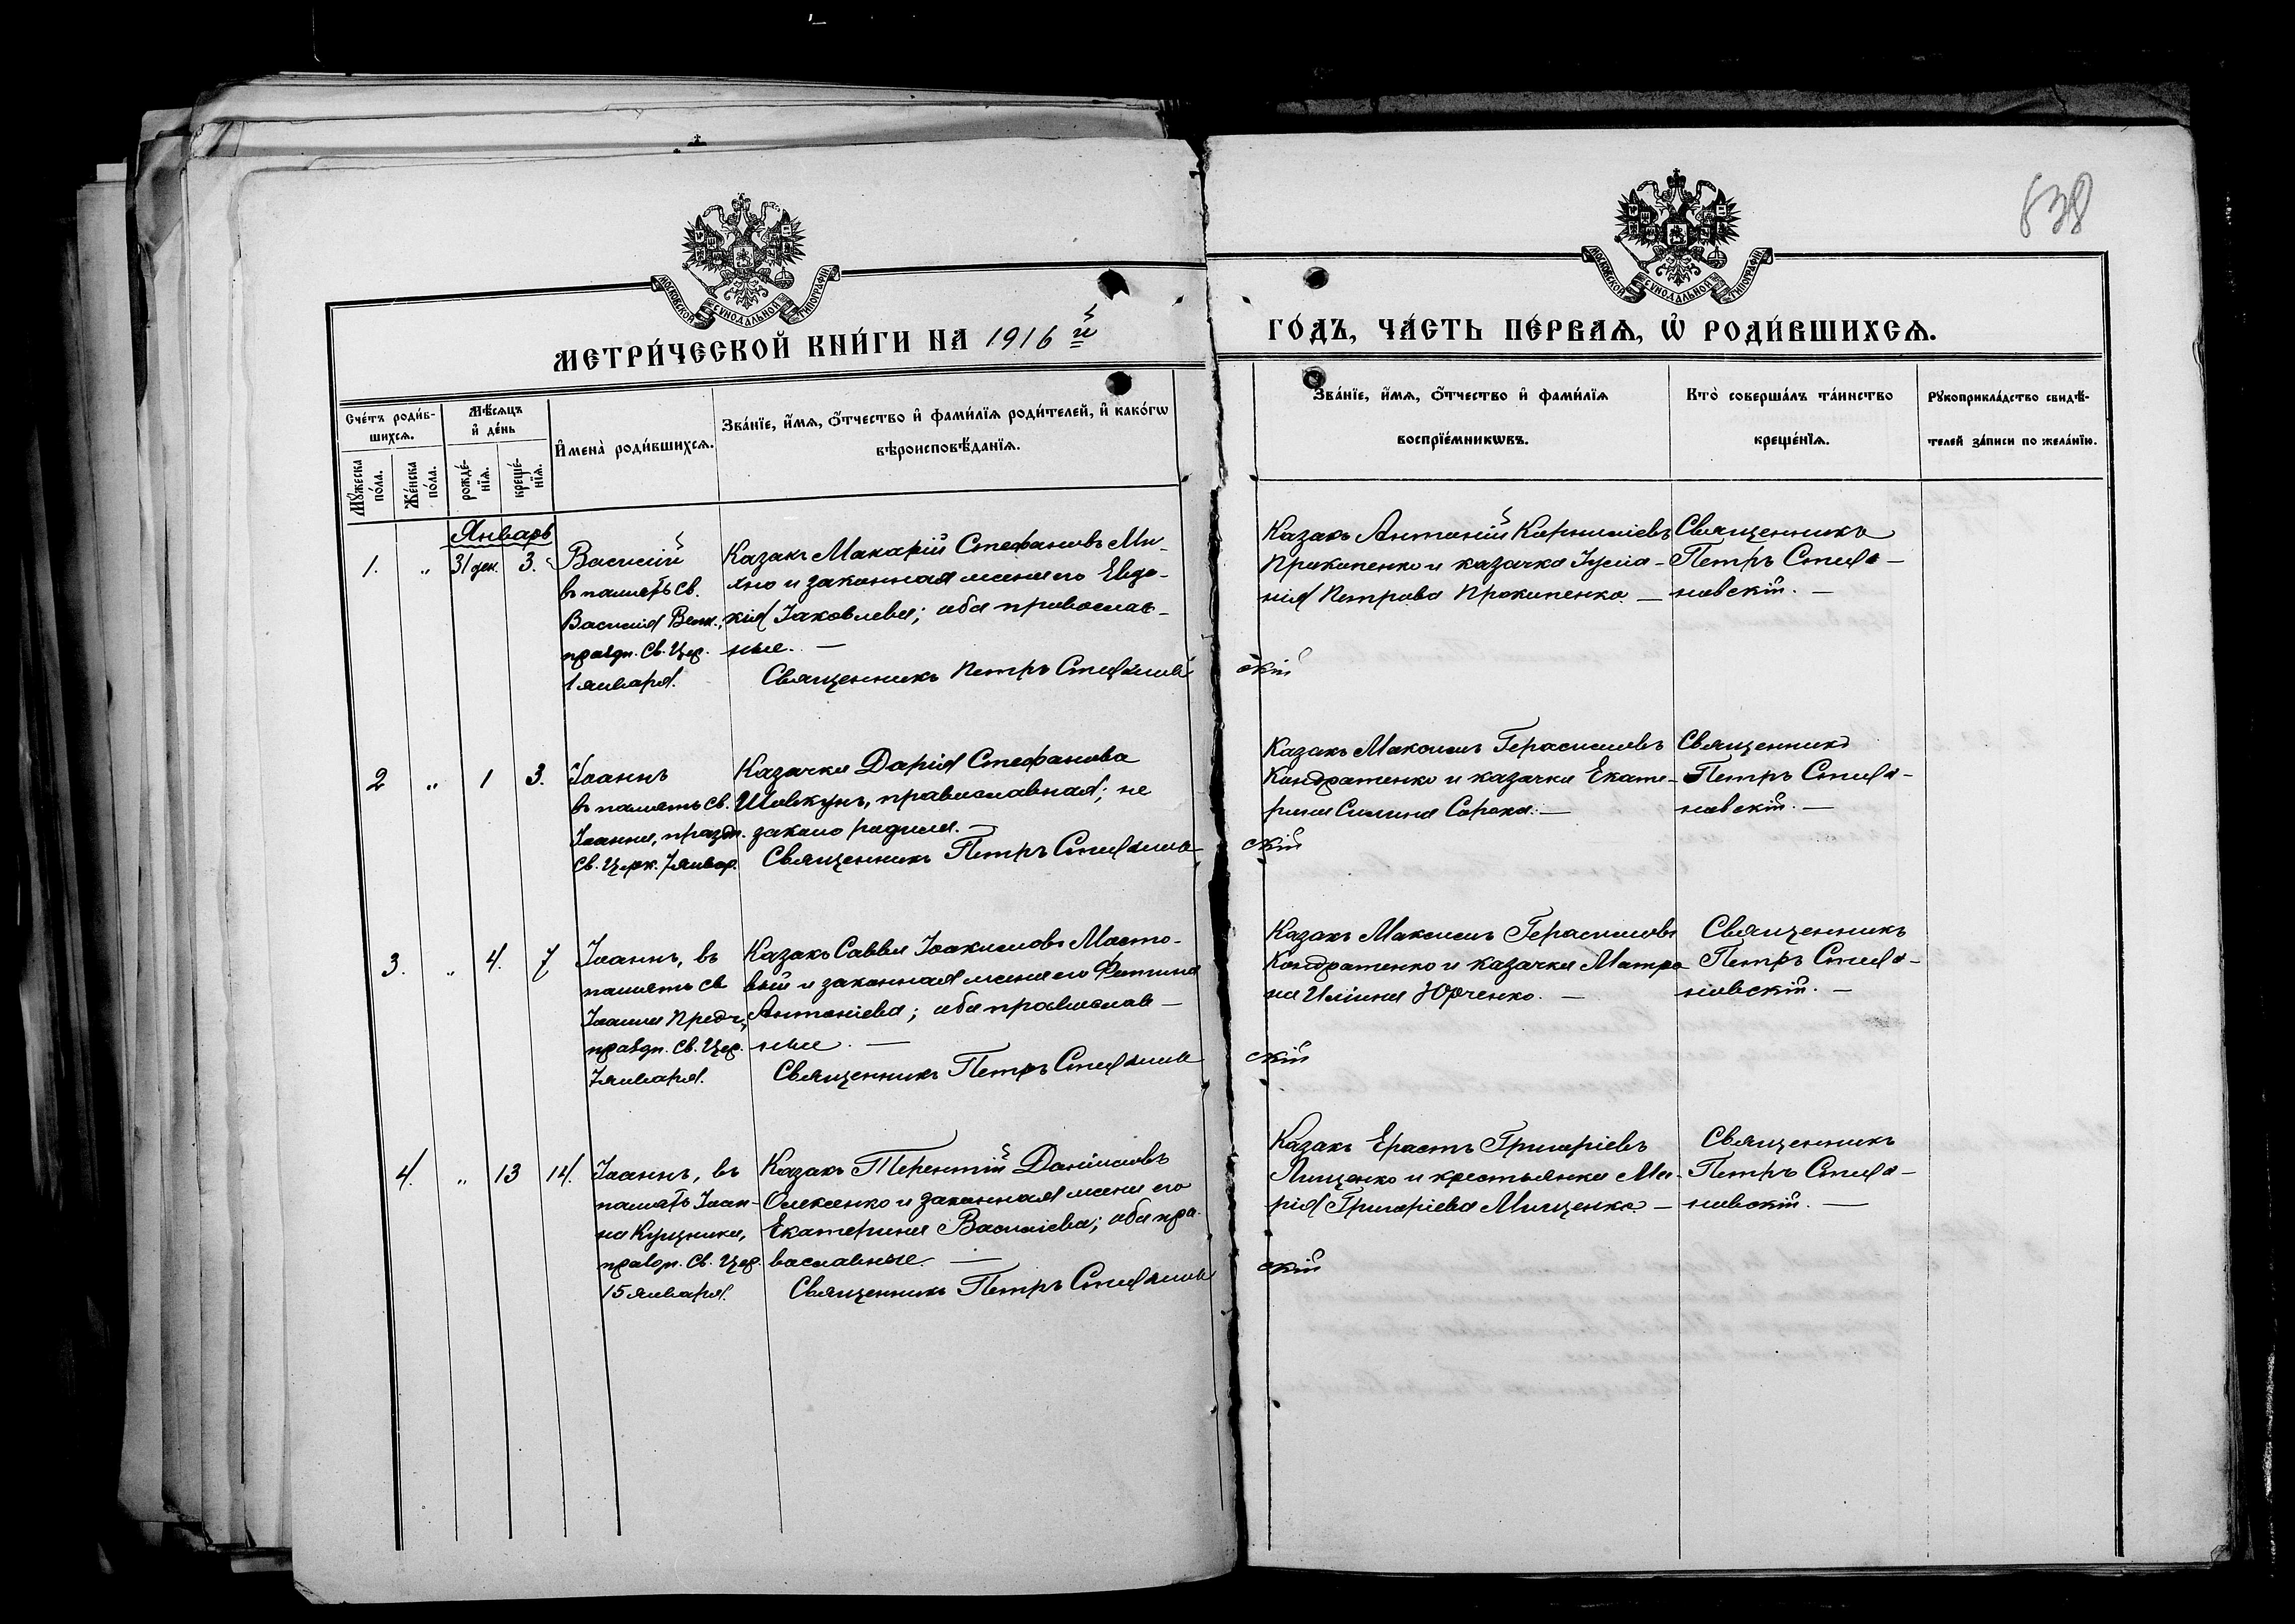 638
МОСКОВСКОЙ СѴНОДАЛЬНОЙ ТИПОГРАФІИ
МОСКОВСКОЙ СѴНОДАЛЬНОЙ ТИПОГРАФІИ
МЕТРИ́ЧЕСКОЙ КНИ́ГИ НА 1916 й
ГО́ДЪ, ЧА́СТЬ ПЕ́РВАѦ, Ѽ РОДИ́ВШИХСѦ.
Сче́тъ роди́в-
шихсѧ.
Мѣ́сѧцъ
и҆ де́нь
Мꙋ́жеска
по́ла.
Же́нска
по́ла.
рожде́-
нїѧ.
креще́-
нїѧ.
И҆мена̀ роди́вшихсѧ.
Зва́нїе, и҆́мѧ, ѻ҆́тчество и҆ фами́лїѧ роди́телей, и҆ како́гѡ
вѣроисповѣ́данїѧ.
Зва́нїе, и҆́мѧ, ѻ҆́тчество и҆ фами́лїѧ
воспрїе́мникѡвъ.
Кто̀ соверша́лъ та́инство
креще́нїѧ.
Рꙋкоприкла́дство свидѣ́-
телей за́писи по жела́нїю.
Январь
1. „ 31 дек. 3.
Василій
въ память св.
Василія Вел.,
праздн. Св. Цер.
1 января.
Казакъ Макарій Стефановъ Ми-
хно и законная жена его Евдо-
кія Іаковлева; оба православ-
ные. —
Священникъ Петръ Стефанов
скій
Казакъ Антоній Корниліевъ
Прокопенко и казачка Іулiа-
нія Петрова Прокопенко. —
Священникъ
Петръ Стефа-
новскій. —
2 „ 1 3.
Іоаннъ
въ память св.
Іоанна, праздн.
Св. Церк. 7 январ.
Казачка Дарія Стефанова
Шовкунъ, православная; не
законо родила. —
Священникъ Петръ Стефанов
скій
Казакъ Максимъ Герасимовъ
Кондратенко и казачка Екате-
рина Силина Сорока. —
Священникъ
Петръ Стефа-
новскій. —
3. „ 4. 7
Іоаннъ, въ
память св
Іоанна Предч.,
праздн. Св. Цер.
7 января.
Казакъ Савва Іоакимовъ Мосто-
вый и законная жена его Фотина
Антоніева; оба православ-
ные. —
Священникъ Петръ Стефанов
скій
Казакъ Максимъ Герасимовъ
Кондратенко и казачка Матро
на Иліина Юрченко. —
Священникъ
Петръ Стефа-
новскій. —
4. „ 13 14.
Іоаннъ, въ
память Іоан-
на Кущника,
праздн. Св. Цер.
15 января.
Казакъ Терентій Даніиловъ
Олексенко и законная жена его
Екатерина Василіева; оба пра-
вославные. —
Священникъ Петръ Стефанов
скій
Казакъ Ерастъ Григоріевъ
Лищенко и крестьянка Ма-
рія Григоріева Мищенко. —
Священникъ
Петръ Стефа-
новскій. —